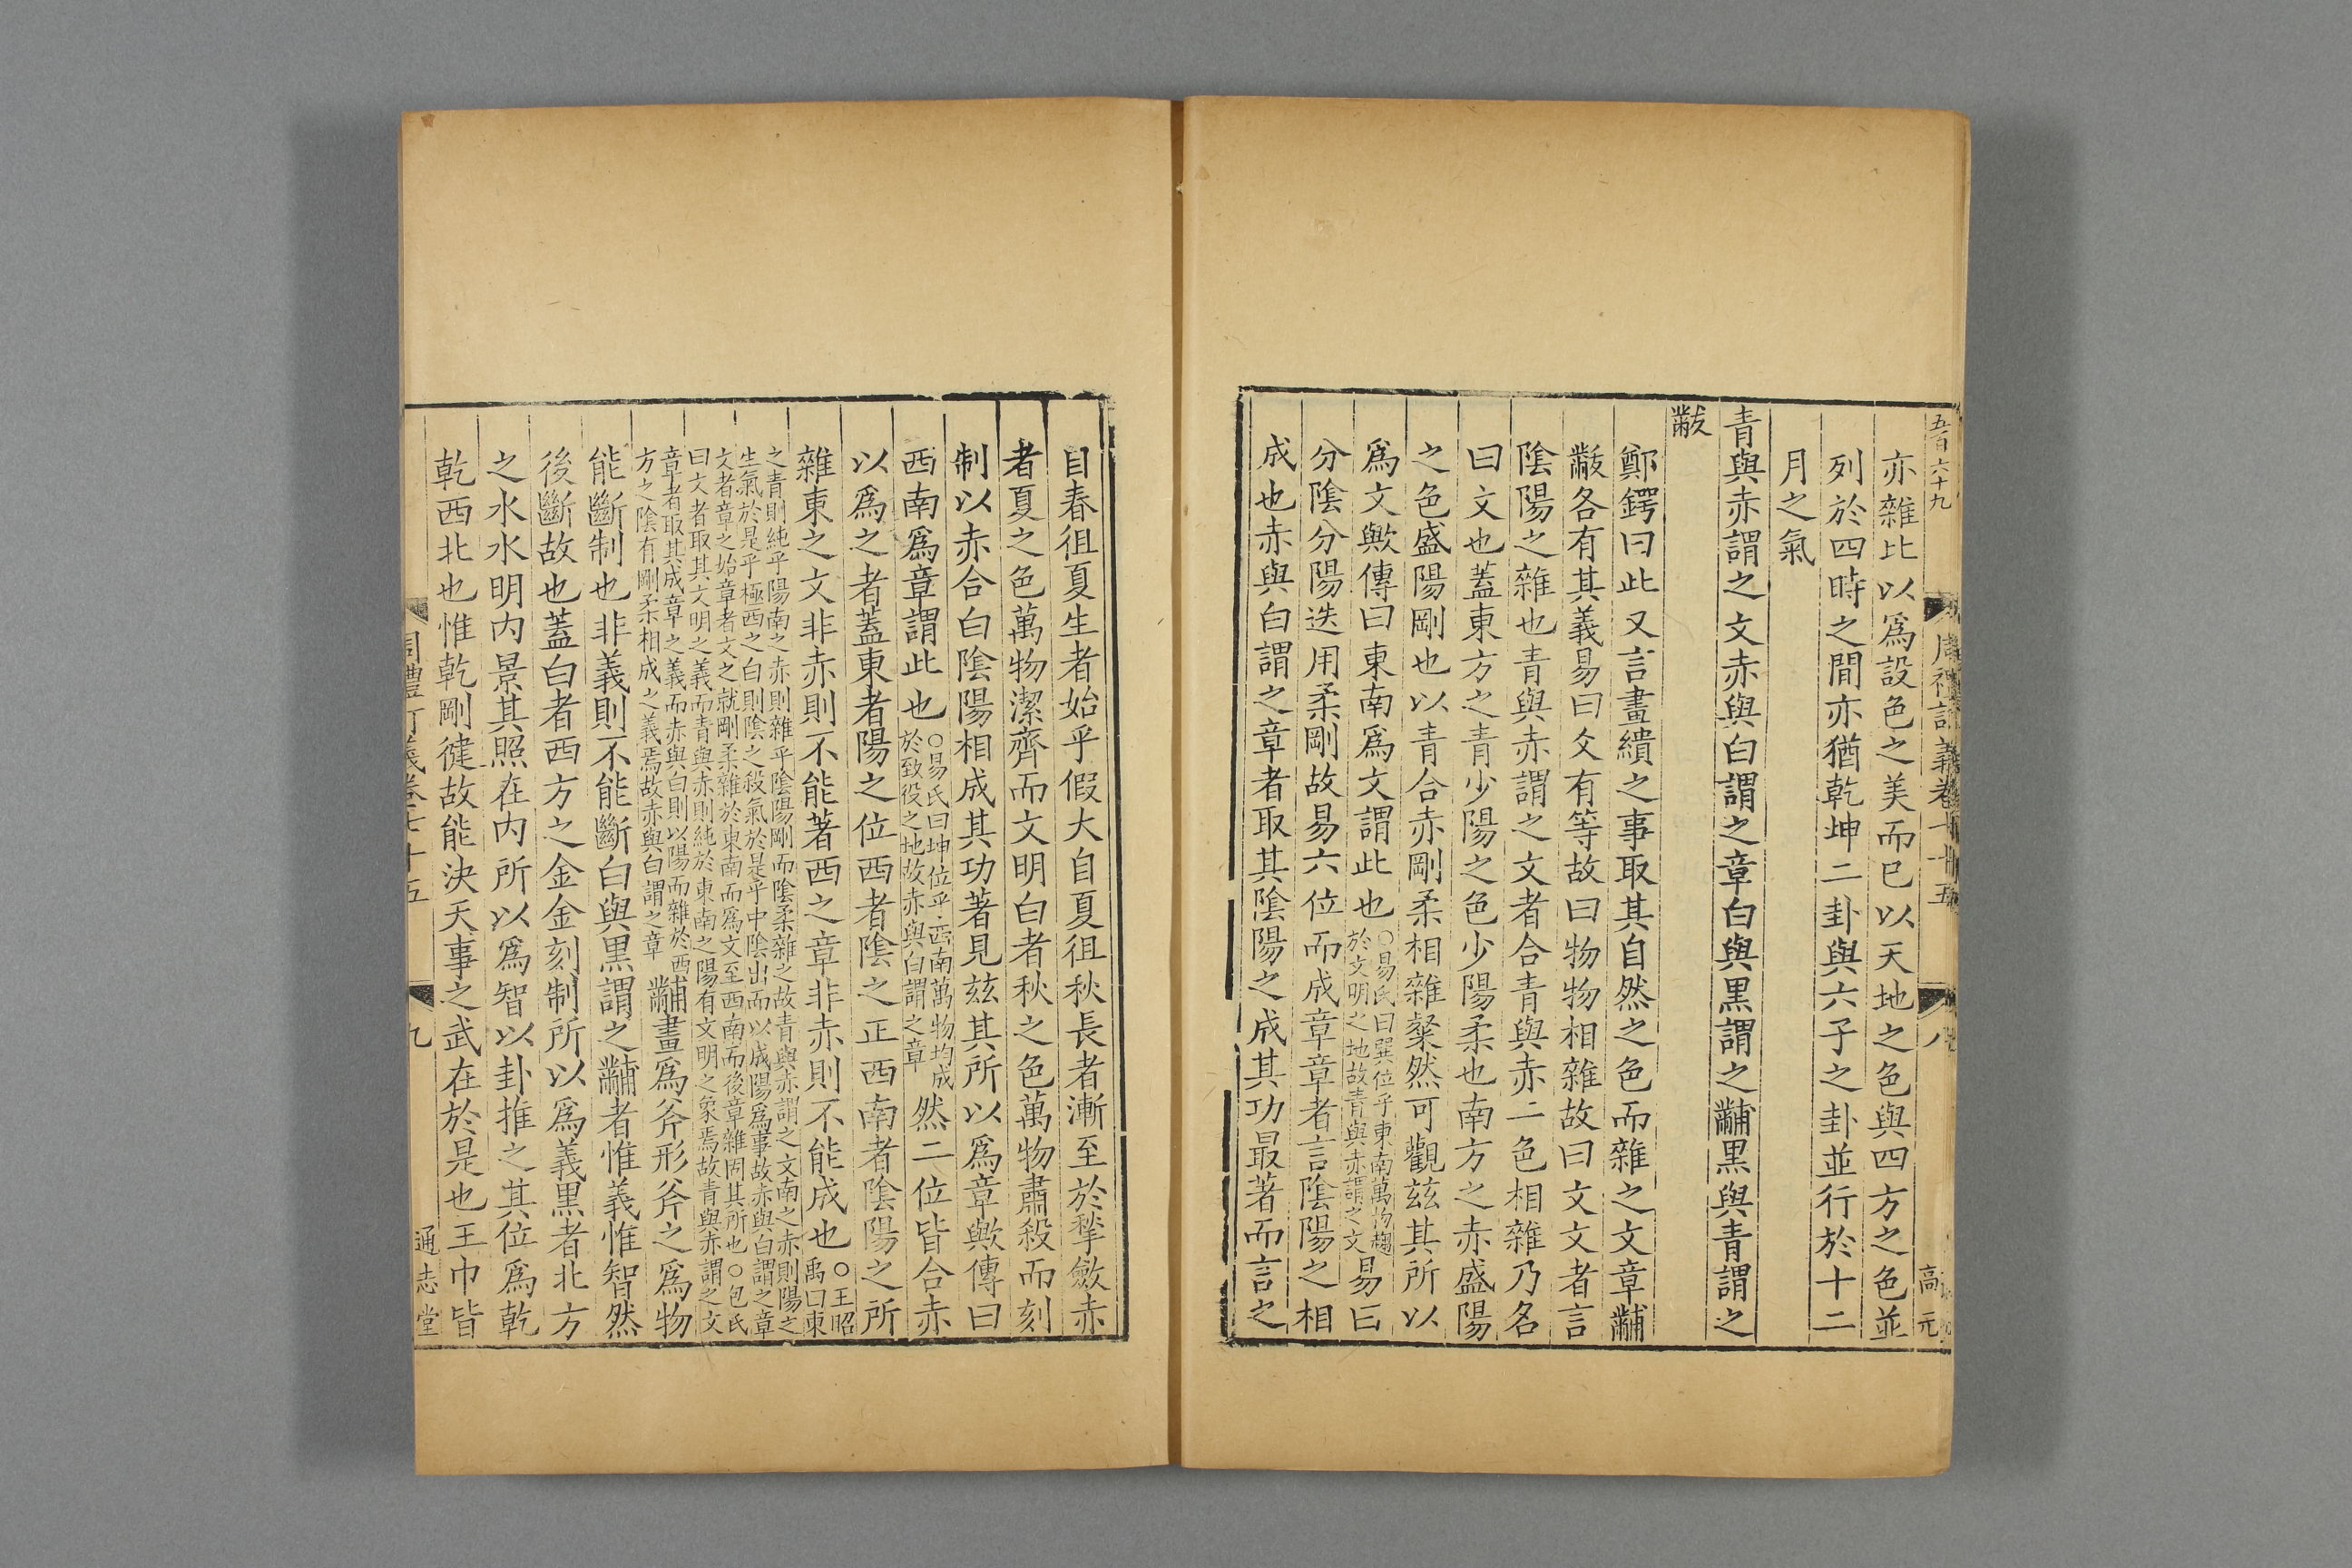 五百六十九
周禮訂義卷七十五
八
高元
亦雜比以爲設色之美而已以天地之色與四方之色並
列於四時之間亦猶乾坤二卦與六子之卦並行於十二
月之氣
青與赤謂之文赤與白謂之章白與黑謂之黼黑與青謂之
黻
鄭鍔曰此又言畫繢之事取其自然之色而雜之文章黼
黻各有其義易曰爻有等故曰物物相雜故曰文文者言
陰陽之雜也青與赤謂之文者合青與赤二色相雜乃名
曰文也蓋東方之青少陽之色少陽柔也南方之赤盛陽
之色盛陽剛也以青合赤剛柔相雜粲然可觀茲其所以
爲文歟傳曰東南爲文謂此也
○易氏曰巽位乎東南萬物
於文明之地故青與赤謂之文
易曰
分陰分陽迭用柔剛故易六位而成章章者言陰陽之相
成也赤與白謂之章者取其陰陽之成其功最著而言之
自春徂夏生者始乎假大自夏徂秋長者漸至於揫斂赤
者夏之色萬物潔齊而文明白者秋之色萬物肅殺而刻
制以赤合白陰陽相成其功著見茲其所以爲章歟傳曰
西南爲章謂此也
○易氏曰坤位乎西南萬物均成
於致役之地故赤與白謂之章
然二位皆合赤
以爲之者蓋東者陽之位西者陰之正西南者陰陽之所
雜東之文非赤則不能著西之章非赤則不能成也
○王昭
禹曰東
之青則純乎陽南之赤則雜乎陰陽剛而陰柔雜之故青與赤謂之文南之赤則陽之
生氣於是乎極西之白則陰之殺氣於是乎中陰出而以成陽爲事故赤與白謂之章
文者章之始章者文之就剛柔雜於東南而爲文至西南而後章雜固其所也○包氏
曰文者取其文明之義而青與赤則純於東南之陽有文明之象焉故青與赤謂之文
章者取其成章之義而赤與白則以陽而雜於西
方之陰有剛柔相成之義焉故赤與白謂之章
黼畫爲斧形斧之爲物
能斷制也非義則不能斷白與黑謂之黼者惟義惟智然
後斷故也蓋白者西方之金金刻制所以爲義黑者北方
之水水明內景其照在內所以爲智以卦推之其位爲乾
乾西北也惟乾剛健故能決天事之武在於是也王巾皆
周禮訂義卷七十五
九
通志堂